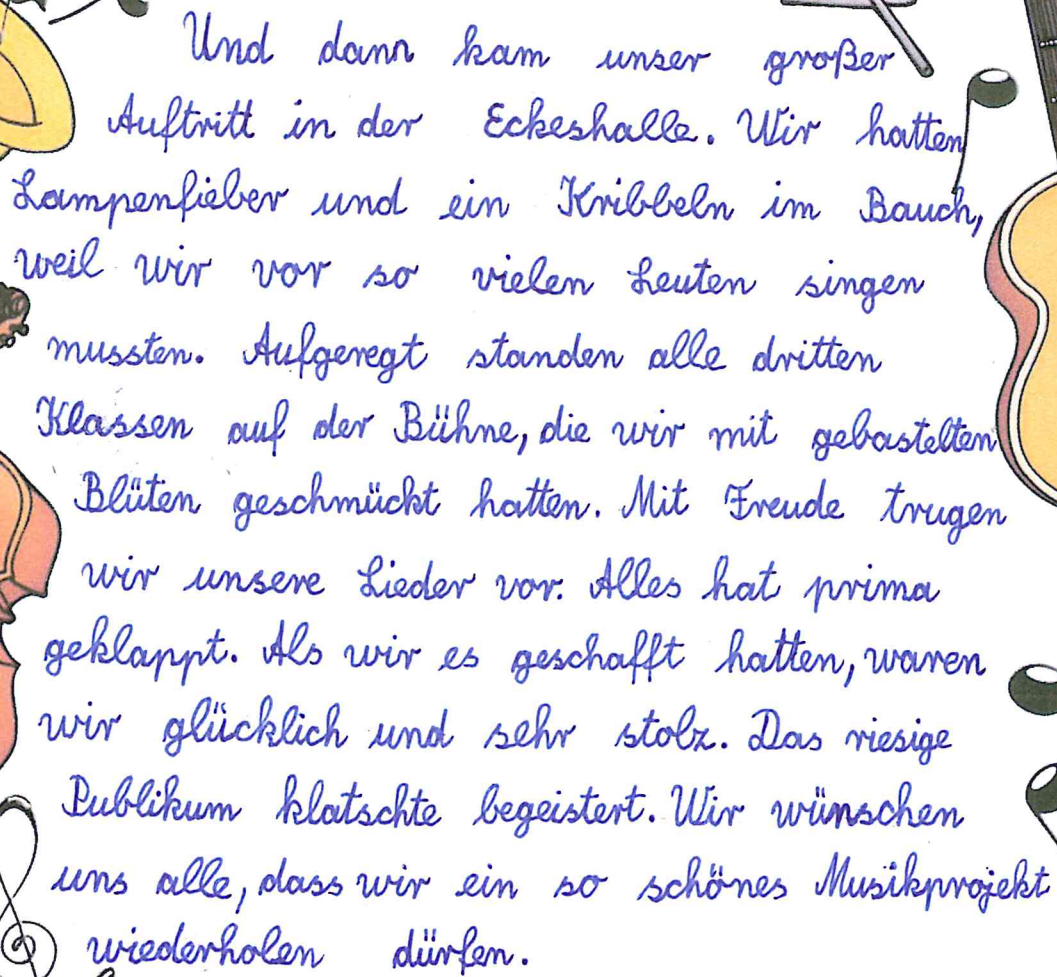 Und dann kam unser großer
Auftritt in der Eckeshalle. Wir hatten
Lampenfieber und ein Kribbeln im Bauch,
weil wir vor so vielen Leuten singen
mussten. Aufgeregt standen alle dritten
Klassen auf der Bühne, die wir mit gebastelten
Blüten geschmückt hatten. Mit Freude trugen
wir unsere Lieder vor. Alles hat prima
geklappt. Als wir es geschafft hatten, waren
wir glücklich und sehr stolz. Das riesige
Publikum klatschte begeistert. Wir wünschen
uns alle, dass wir ein so schönes Musikprojekt
wiederholen dürfen.